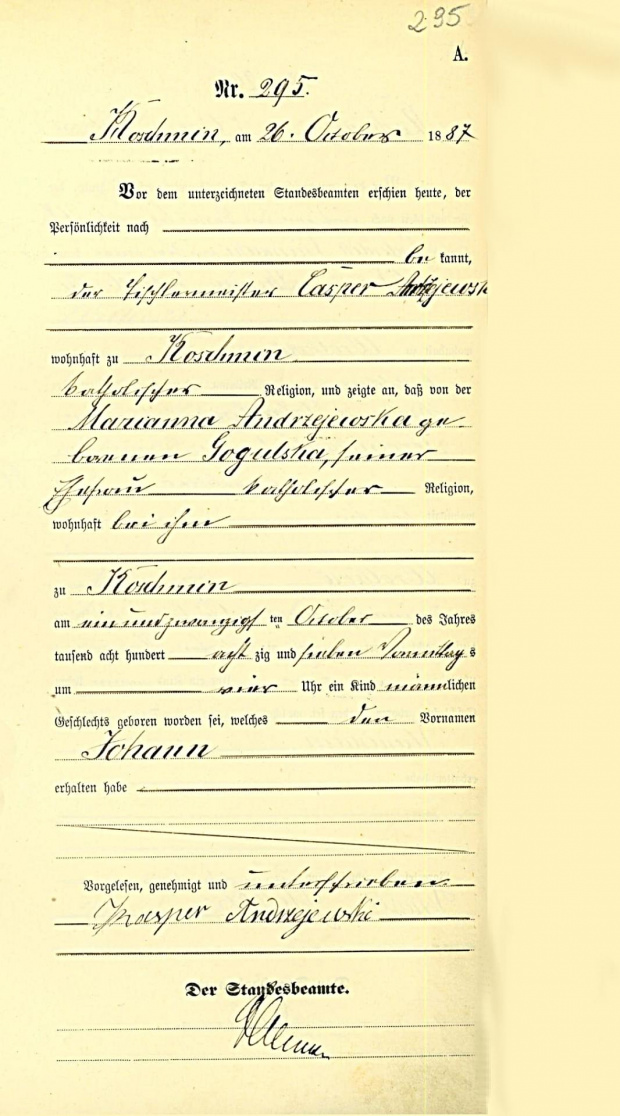 295
A.
Nr. 295.
Koschmin, am 26. October 1887
Vor dem unterzeichneten Standesbeamten erschien heute, der
Persönlichkeit nach
be kannt,
der Tischlermeister Casper Andrzejewski
wohnhaft zu Koschmin
katholischer Religion, und zeigte an, daß von der
Marianna Andrzejewska ge-
borenen Gogulska, seiner
Ehefrau katholischer Religion,
wohnhaft bei ihm
zu Koschmin
am ein und zwanzigsten October des Jahres
tausend acht hundert acht zig und sieben Vormittags
um vier Uhr ein Kind männlichen
Geschlechts geboren worden sei, welches den Vornamen
Johann
erhalten habe
Vorgelesen, genehmigt und unterschrieben
Kasper Andrzejewski
Der Standesbeamte.